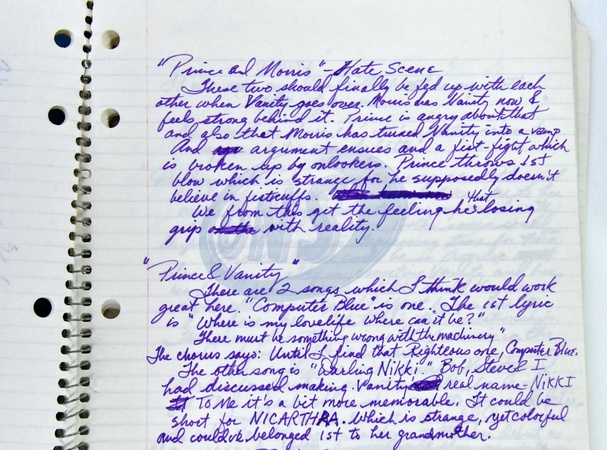 "Prince and Morris" - Hate Scene
These two should finally be fed up with each
other when Vanity goes over. Morris has Vanity now &
feels strong behind it. Prince is angry about that
and also that Morris has turned Vanity into a vamp
And argument ensues and a fist-fight which
is broken up by onlookers. Prince throws 1st
blow which is strange for he supposedly doesn't
believe in fistcuffs. that
We from this get the feeling he's losing
grip with reality.
"Prince & Vanity"
There are 2 songs which I think would work
great here. "Computer Blue" is one. The 1st lyric
is "Where is my lovelife where can it be?"
There must be something wrong with the machinery"
The chorus says: Until I find that Righteous one, Computer Blue.
The other song is "Darling Nikki." Bob, Steve & I
had discussed making Vanity real name - NIKKI
To me it's a bit more memorable. It could be
short for NICARTHRA. Which is strange, yet colorful
and could've belonged 1st to her grandmother.